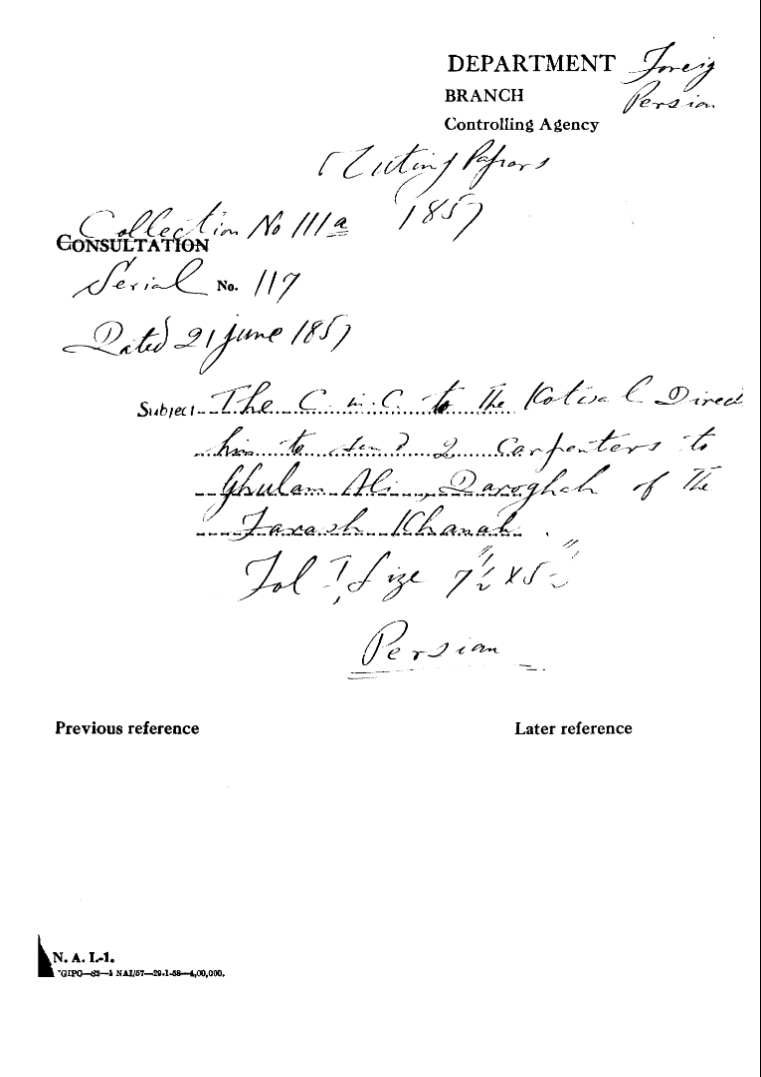 DEPARTMENT Foreig
BRANCH Persian
Controlling Agency
Mutiny Papers
Collection No 111a 1857
CONSULTATION
Serial No. 117
Dated 21 June 1857
Subject The C in C. to the Kotwal Direct
him to send 2 Carpenters to
Ghulam Ali, Daroghah of the
Farash Khanah.
Fol I, Size 7½" x 5½"
Persian
Previous reference Later reference
N. A. I.-1.
GIPC—S3—1 NAI/57—29-1-58—4,00,000.